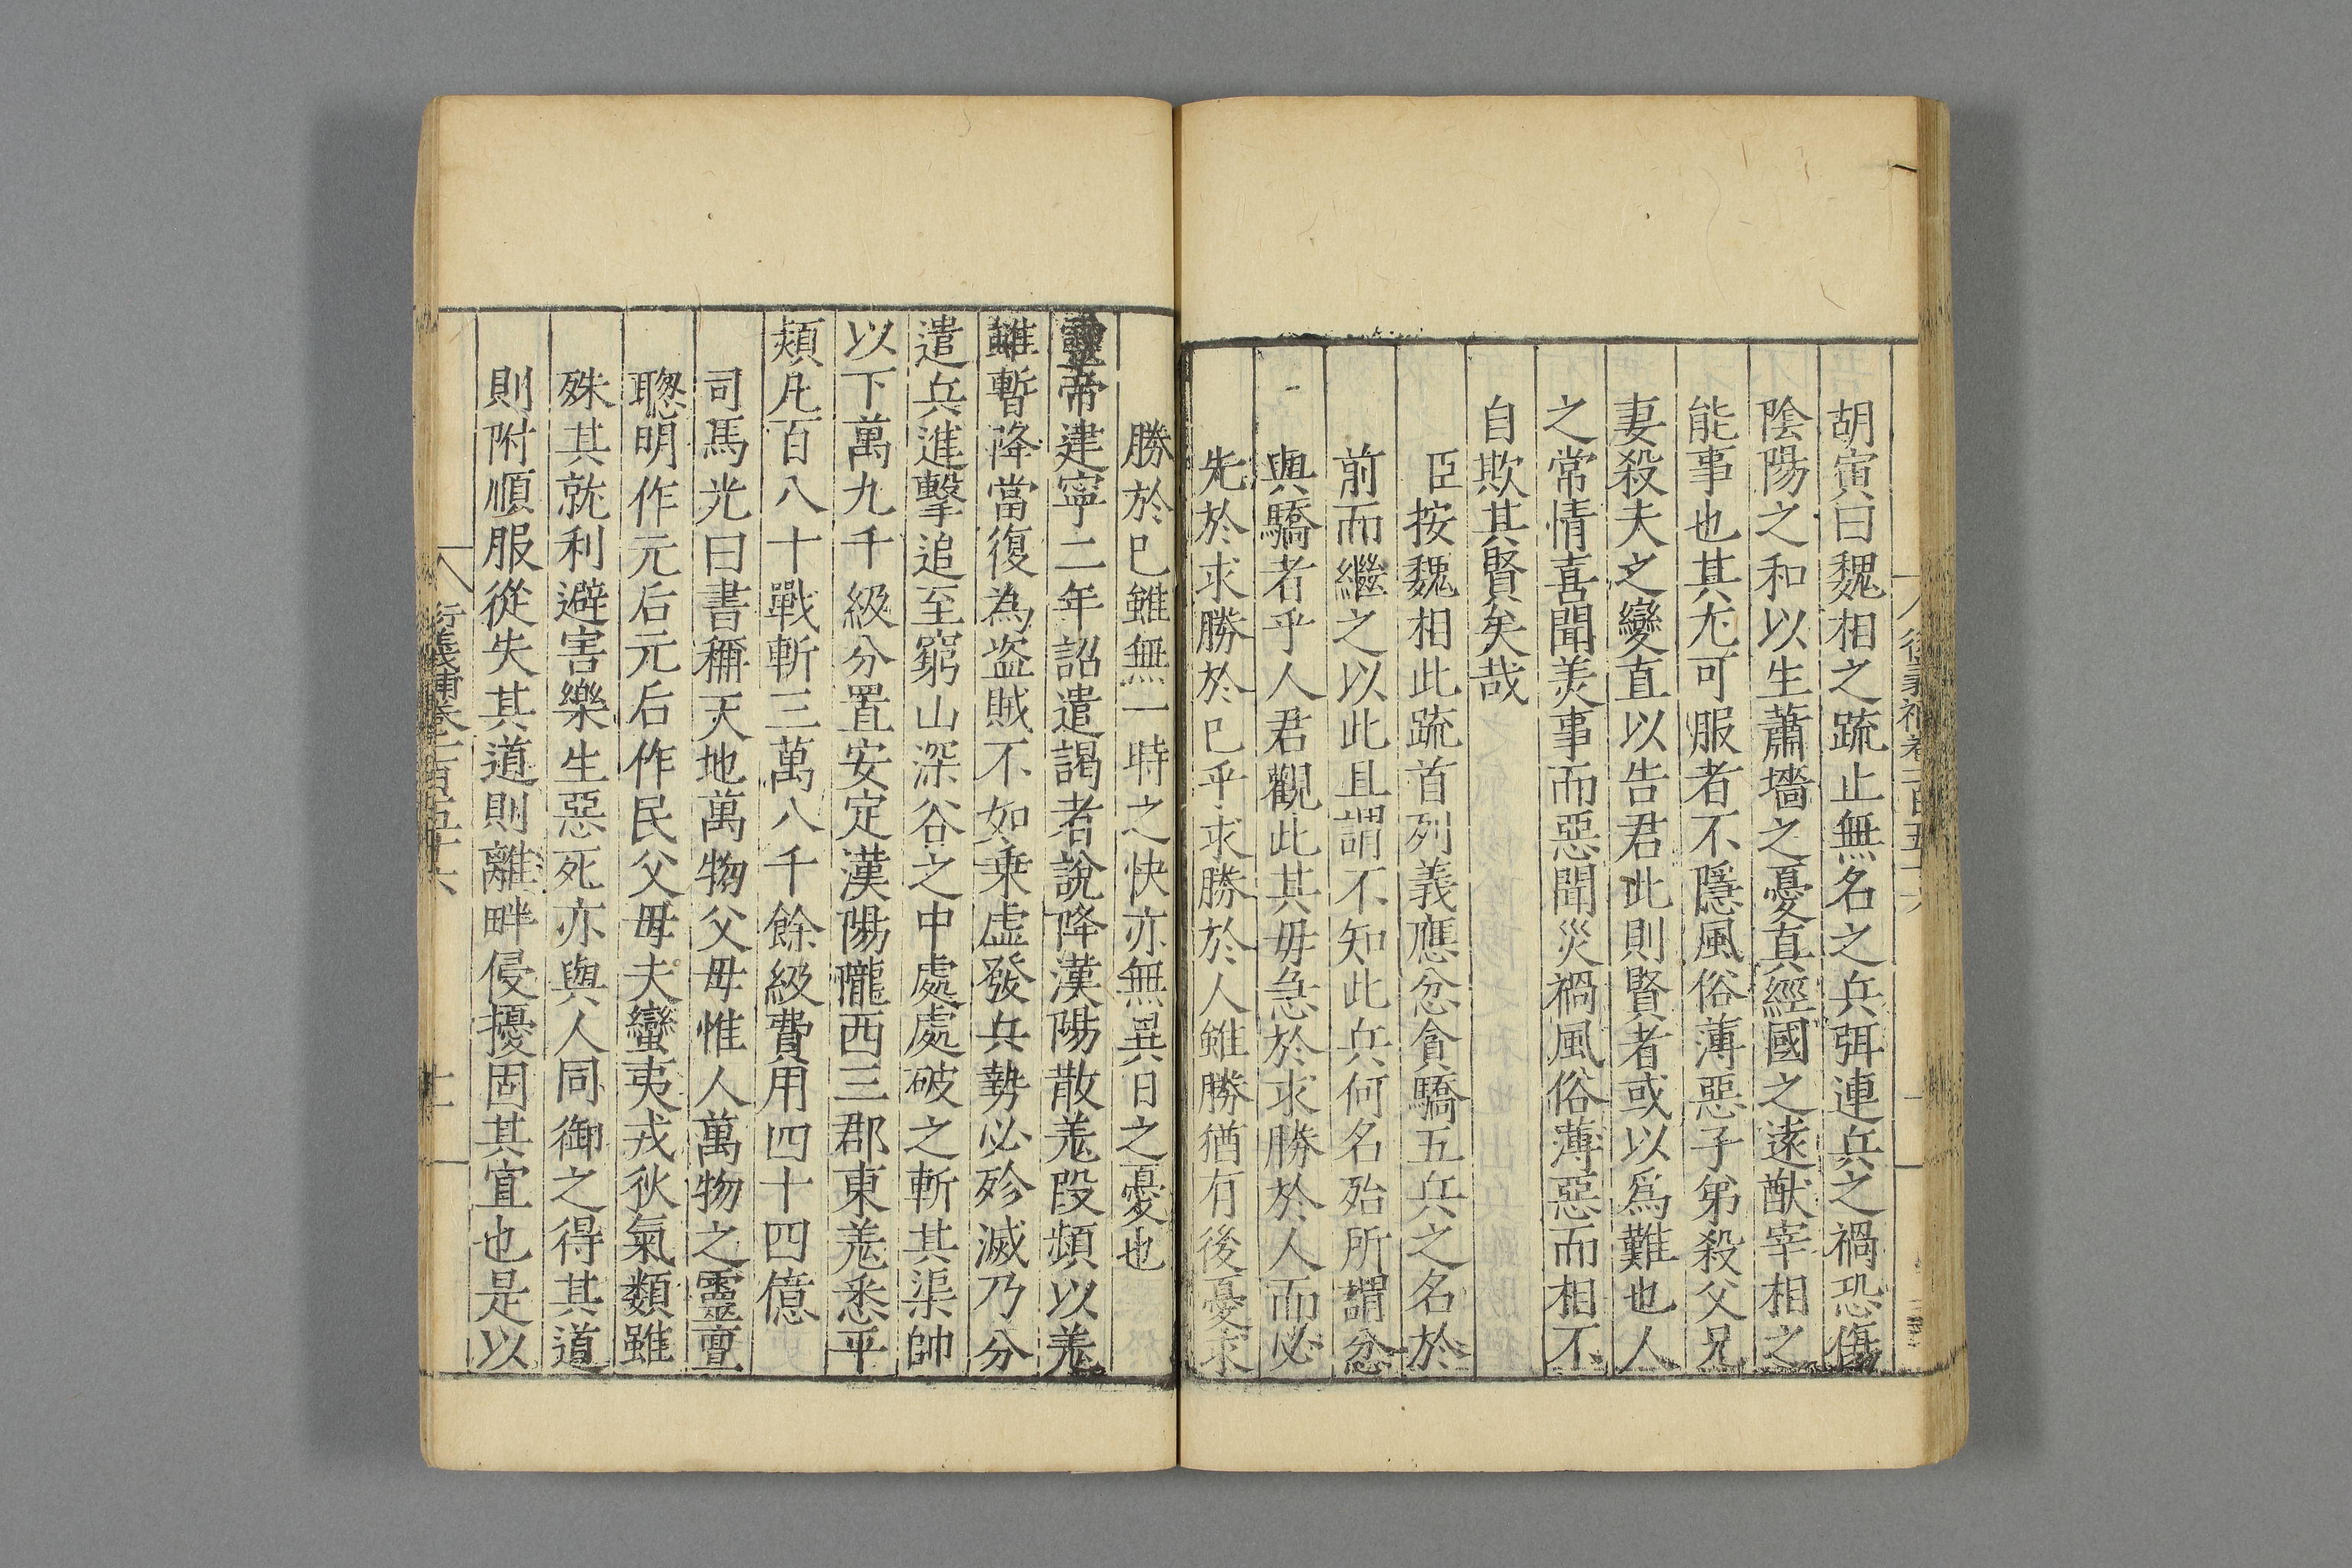 胡寅曰魏相之䟽止無名之兵弭連兵之禍恐傷
陰陽之和以生蕭墻之憂真經國之遠猷宰相之
能事也其尤可服者不隱風俗薄惡子弟殺父兄
妻殺夫之變直以告君此則賢者或以爲難也人
之常情喜聞羙事而惡聞災禍風俗薄惡而相不
自欺其賢矣哉
臣按魏相此䟽首列義應忿貪驕五兵之名於
前而繼之以此且謂不知此兵何名殆所謂忿
與驕者乎人君觀此其毋急於求勝於人而必
先於求勝於已乎求勝於人雖勝猶有後憂求
勝於已雖無一時之快亦無異日之憂也
靈帝建寧二年詔遣謁者說降漢陽散羗段熲以羗
雖暫降當復為盗賊不如乗虚發兵勢必殄滅乃分
遣兵進擊追至窮山深谷之中處處破之斬其渠帥
以下萬九千級分置安定漢陽隴西三郡東羗悉平
熲凡百八十戰斬三萬八千餘級費用四十四億
司馬光曰書稱天地萬物父母惟人萬物之靈亶
聰明作元后元后作民父母夫蠻夷戎狄氣類雖
殊其就利避害樂生惡死亦與人同御之得其道
則附順服從失其道則離畔侵擾固其宜也是以
衍義補卷一百五十六
十一